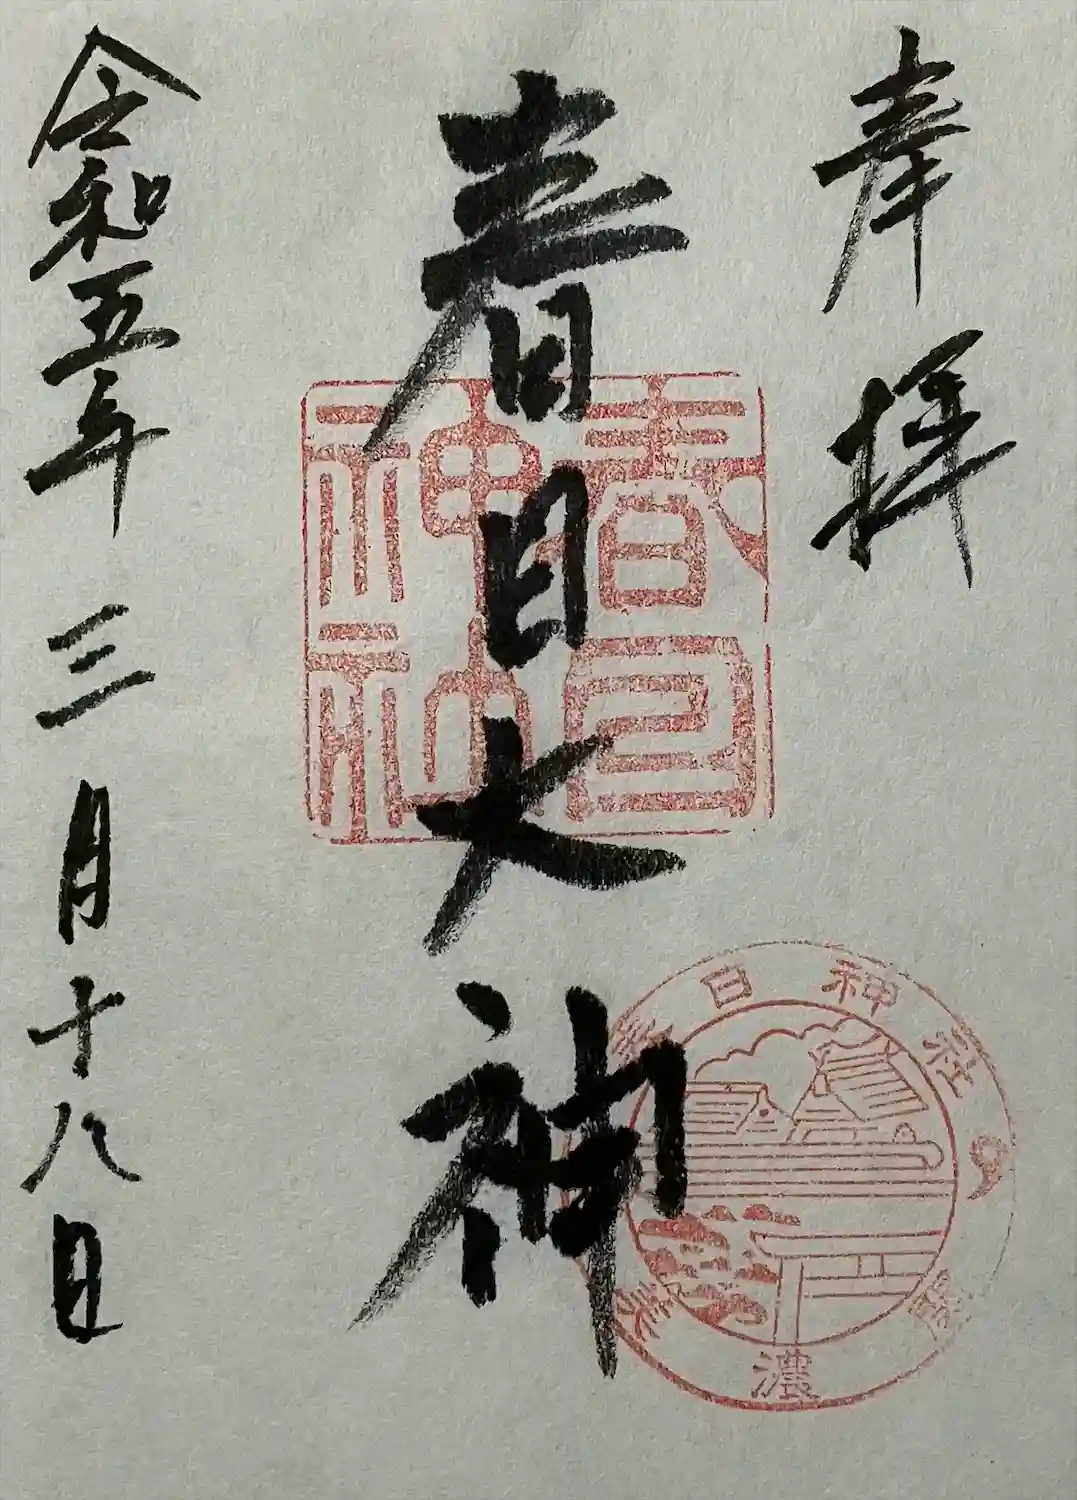 奉拝
春日大神
春日
神社
令和五年三月十八日
春日神社
美濃關